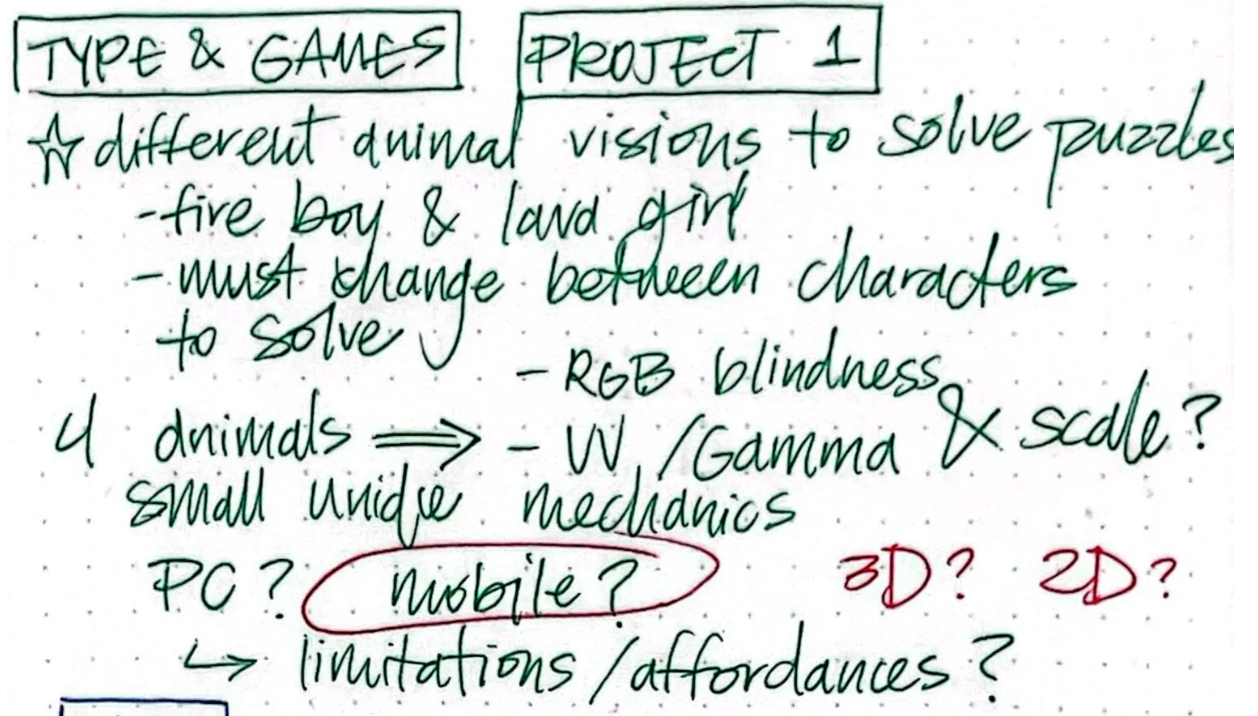 TYPE & GAMES PROJECT 1
☆ different animal visions to solve puzzles
- fire boy & lava girl
- must change between characters
to solve
- RGB blindness
4 animals ⇒ - UV, /Gamma & scale?
small unique mechanics
PC? mobile? 3D? 2D?
↳ limitations/affordances?